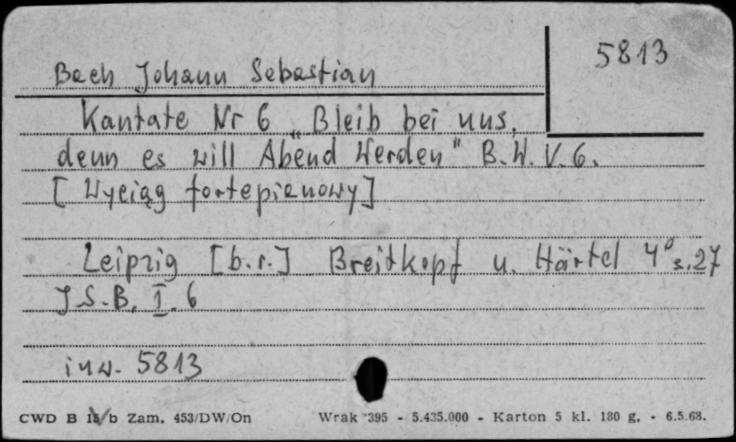 5813
Bach Johann Sebastian
Kantate Nr 6 „Bleib bei uns,
denn es will Abend Werden" B.W.V.6.
[Wyciąg fortepianowy]
Leipzig [b.r.] Breitkopf u. Härtel 4° s.27
J.S.B. I. 6
inw. 5813
CWD B /b Zam. 453/DW/On Wrak 395 - 5.435.000 - Karton 5 kl. 180 g. - 6.5.68.